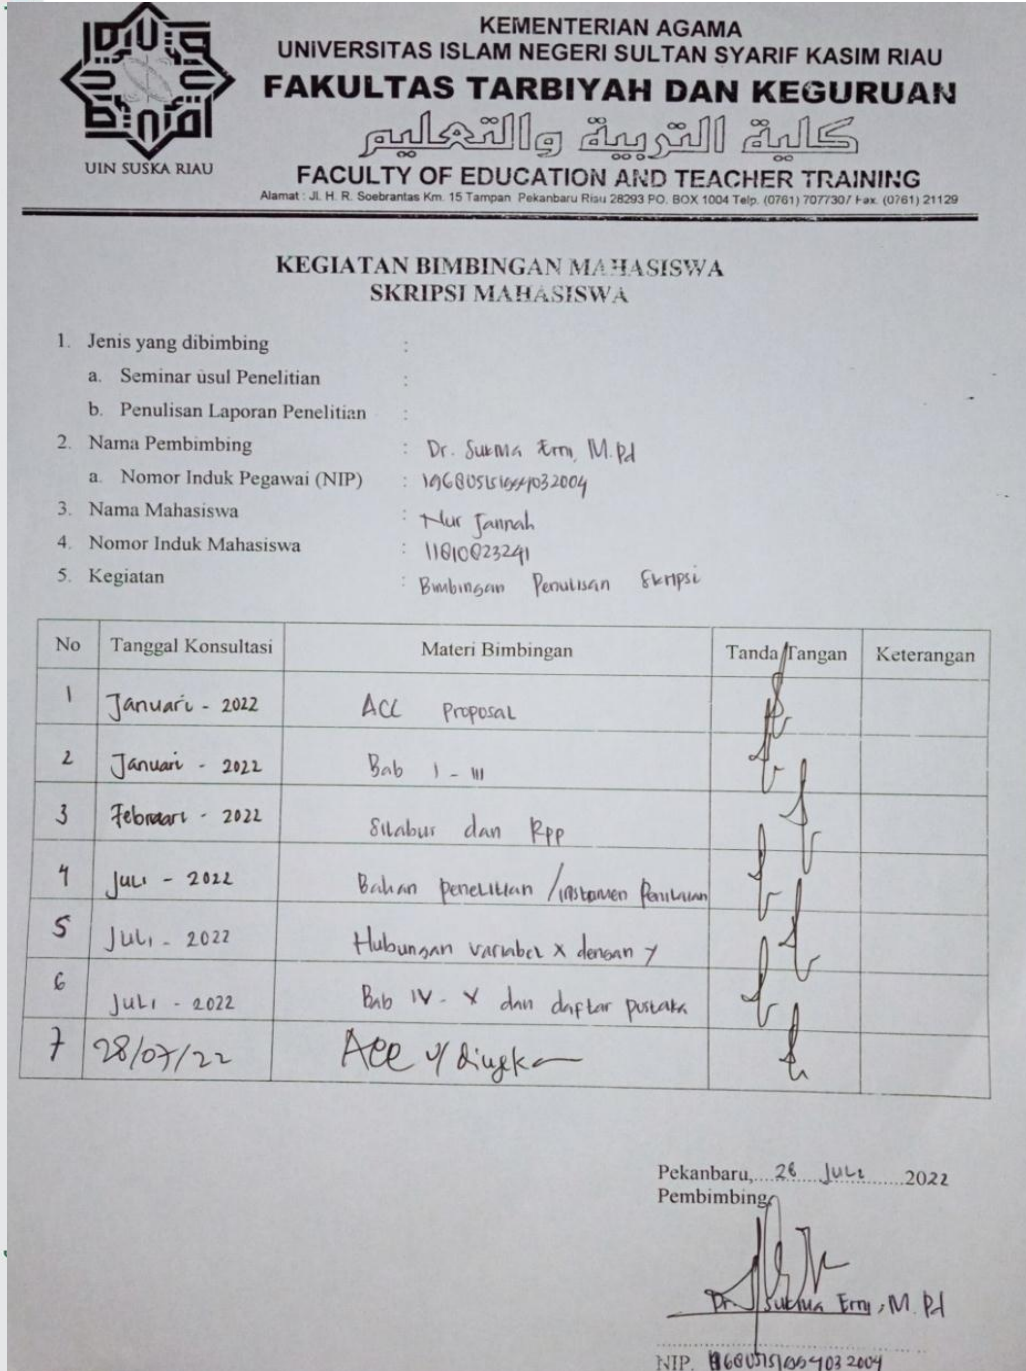 KEMENTERIAN AGAMA
UNIVERSITAS ISLAM NEGERI SULTAN SYARIF KASIM RIAU
FAKULTAS TARBIYAH DAN KEGURUAN
كلية التربية والتعليم
FACULTY OF EDUCATION AND TEACHER TRAINING
Alamat : Jl. H. R. Soebrantas Km. 15 Tampan Pekanbaru Riau 28293 PO. BOX 1004 Telp. (0761) 7077307 Fax. (0761) 21129
UIN SUSKA RIAU
KEGIATAN BIMBINGAN MAHASISWA
SKRIPSI MAHASISWA
1. Jenis yang dibimbing :
a. Seminar usul Penelitian :
b. Penulisan Laporan Penelitian :
2. Nama Pembimbing : Dr. Sukma Erni, M.Pd
a. Nomor Induk Pegawai (NIP) :
3. Nama Mahasiswa : Nur Jannah
4. Nomor Induk Mahasiswa : 11810823241
5. Kegiatan : Bimbingan Penulisan Skripsi
No Tanggal Konsultasi Materi Bimbingan Tanda Tangan Keterangan
1 Januari - 2022 ACC Proposal
2 Januari - 2022 Bab I - III
3 Februari - 2022 Silabus dan Rpp
4 Juli - 2022 Bahan penelitian / instrumen Penilaian
5 Juli - 2022 Hubungan variabel X dengan Y
6 Juli - 2022 Bab IV - V dan daftar pustaka
7 28/07/22 Acc
Pekanbaru, 28 Juli 2022
Pembimbing
Dr. Sukma Erni, M.Pd
NIP.